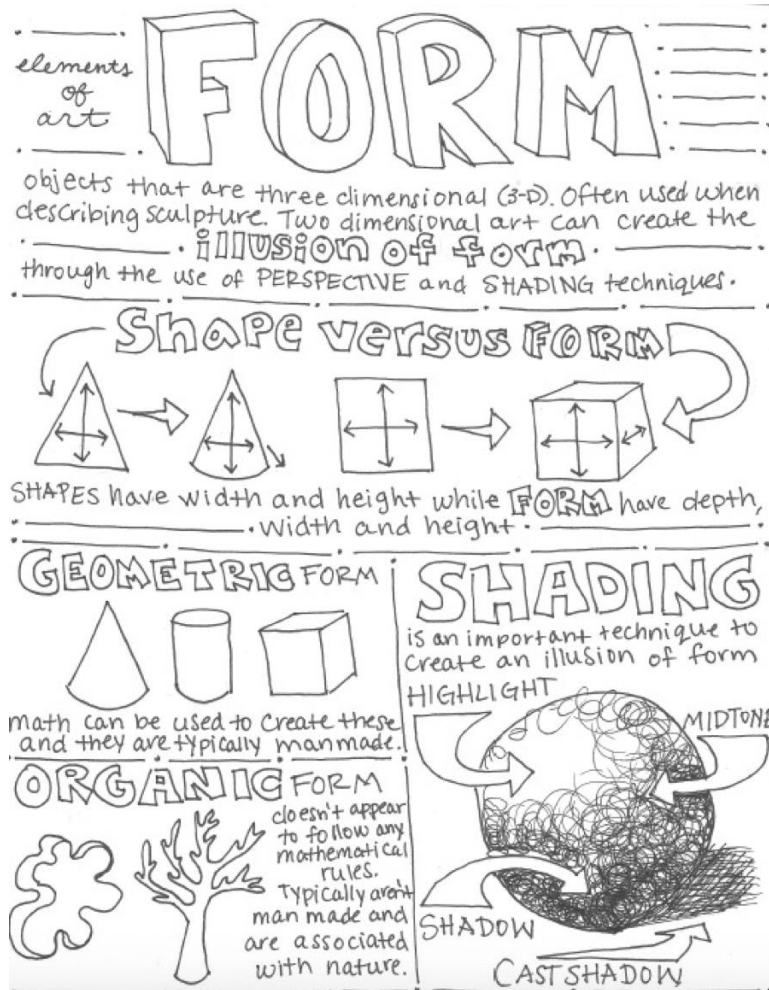 elements
of
art
FORM
objects that are three dimensional (3-D). Often used when
describing sculpture. Two dimensional art can create the
illusion of form
through the use of PERSPECTIVE and SHADING techniques.
Shape versus FORM
SHAPES have width and height while FORM have depth,
width and height
GEOMETRIC FORM
math can be used to create these
and they are typically manmade.
ORGANIC FORM
doesn't appear
to follow any
mathematical
rules.
Typically aren't
man made and
are associated
with nature.
SHADING
is an important technique to
create an illusion of form
HIGHLIGHT
MIDTONE
SHADOW
CAST SHADOW